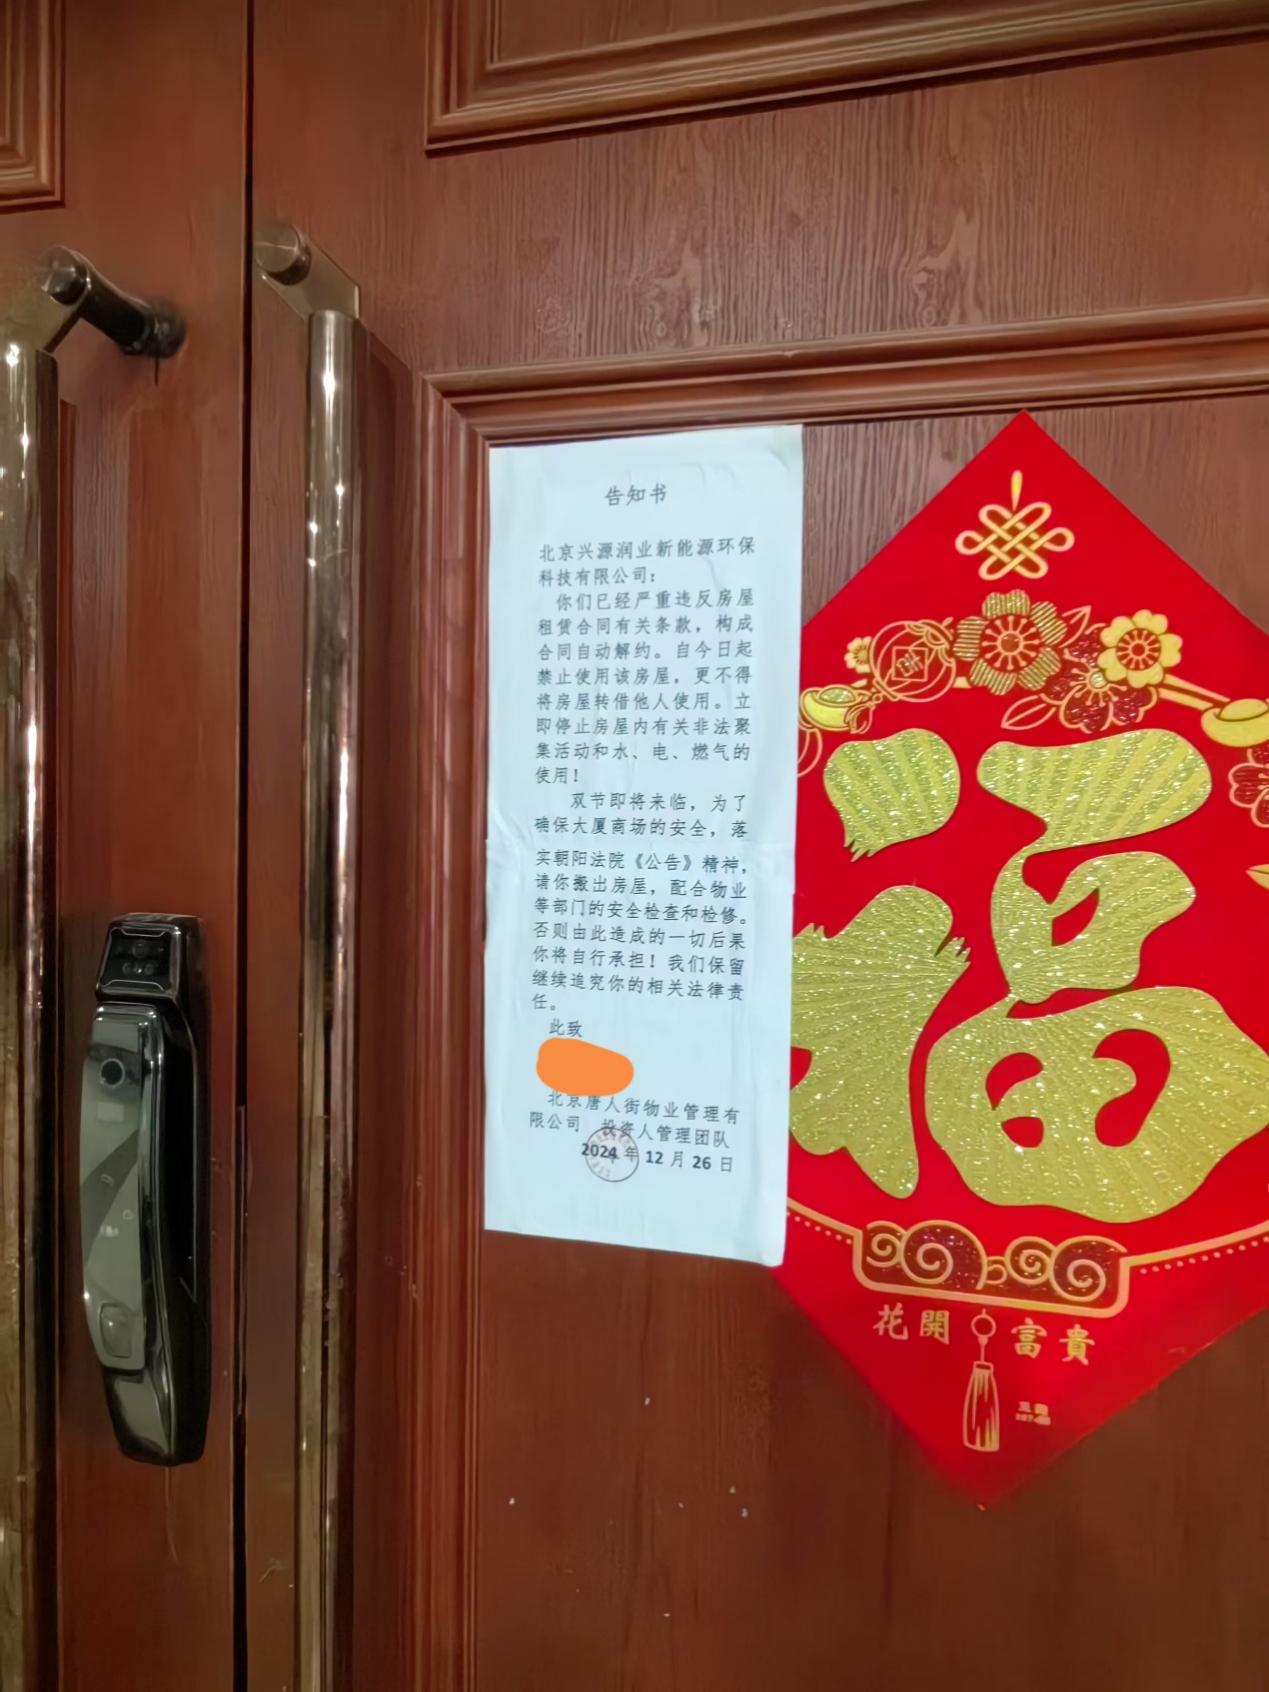 告知书
北京兴源润业新能源环保
科技有限公司：
你们已经严重违反房屋
租赁合同有关条款，构成
合同自动解约。自今日起
禁止使用该房屋，更不得
将房屋转借他人使用。立
即停止房屋内有关非法聚
集活动和水、电、燃气的
使用！
双节即将来临，为了
确保大厦商场的安全，落
实朝阳法院《公告》精神，
请你搬出房屋，配合物业
等部门的安全检查和检修。
否则由此造成的一切后果
你将自行承担！我们保留
继续追究你的相关法律责
任。
此致
北京唐人街物业管理有
限公司 投资人管理团队
2024 年 12 月 26 日
福
花開富貴